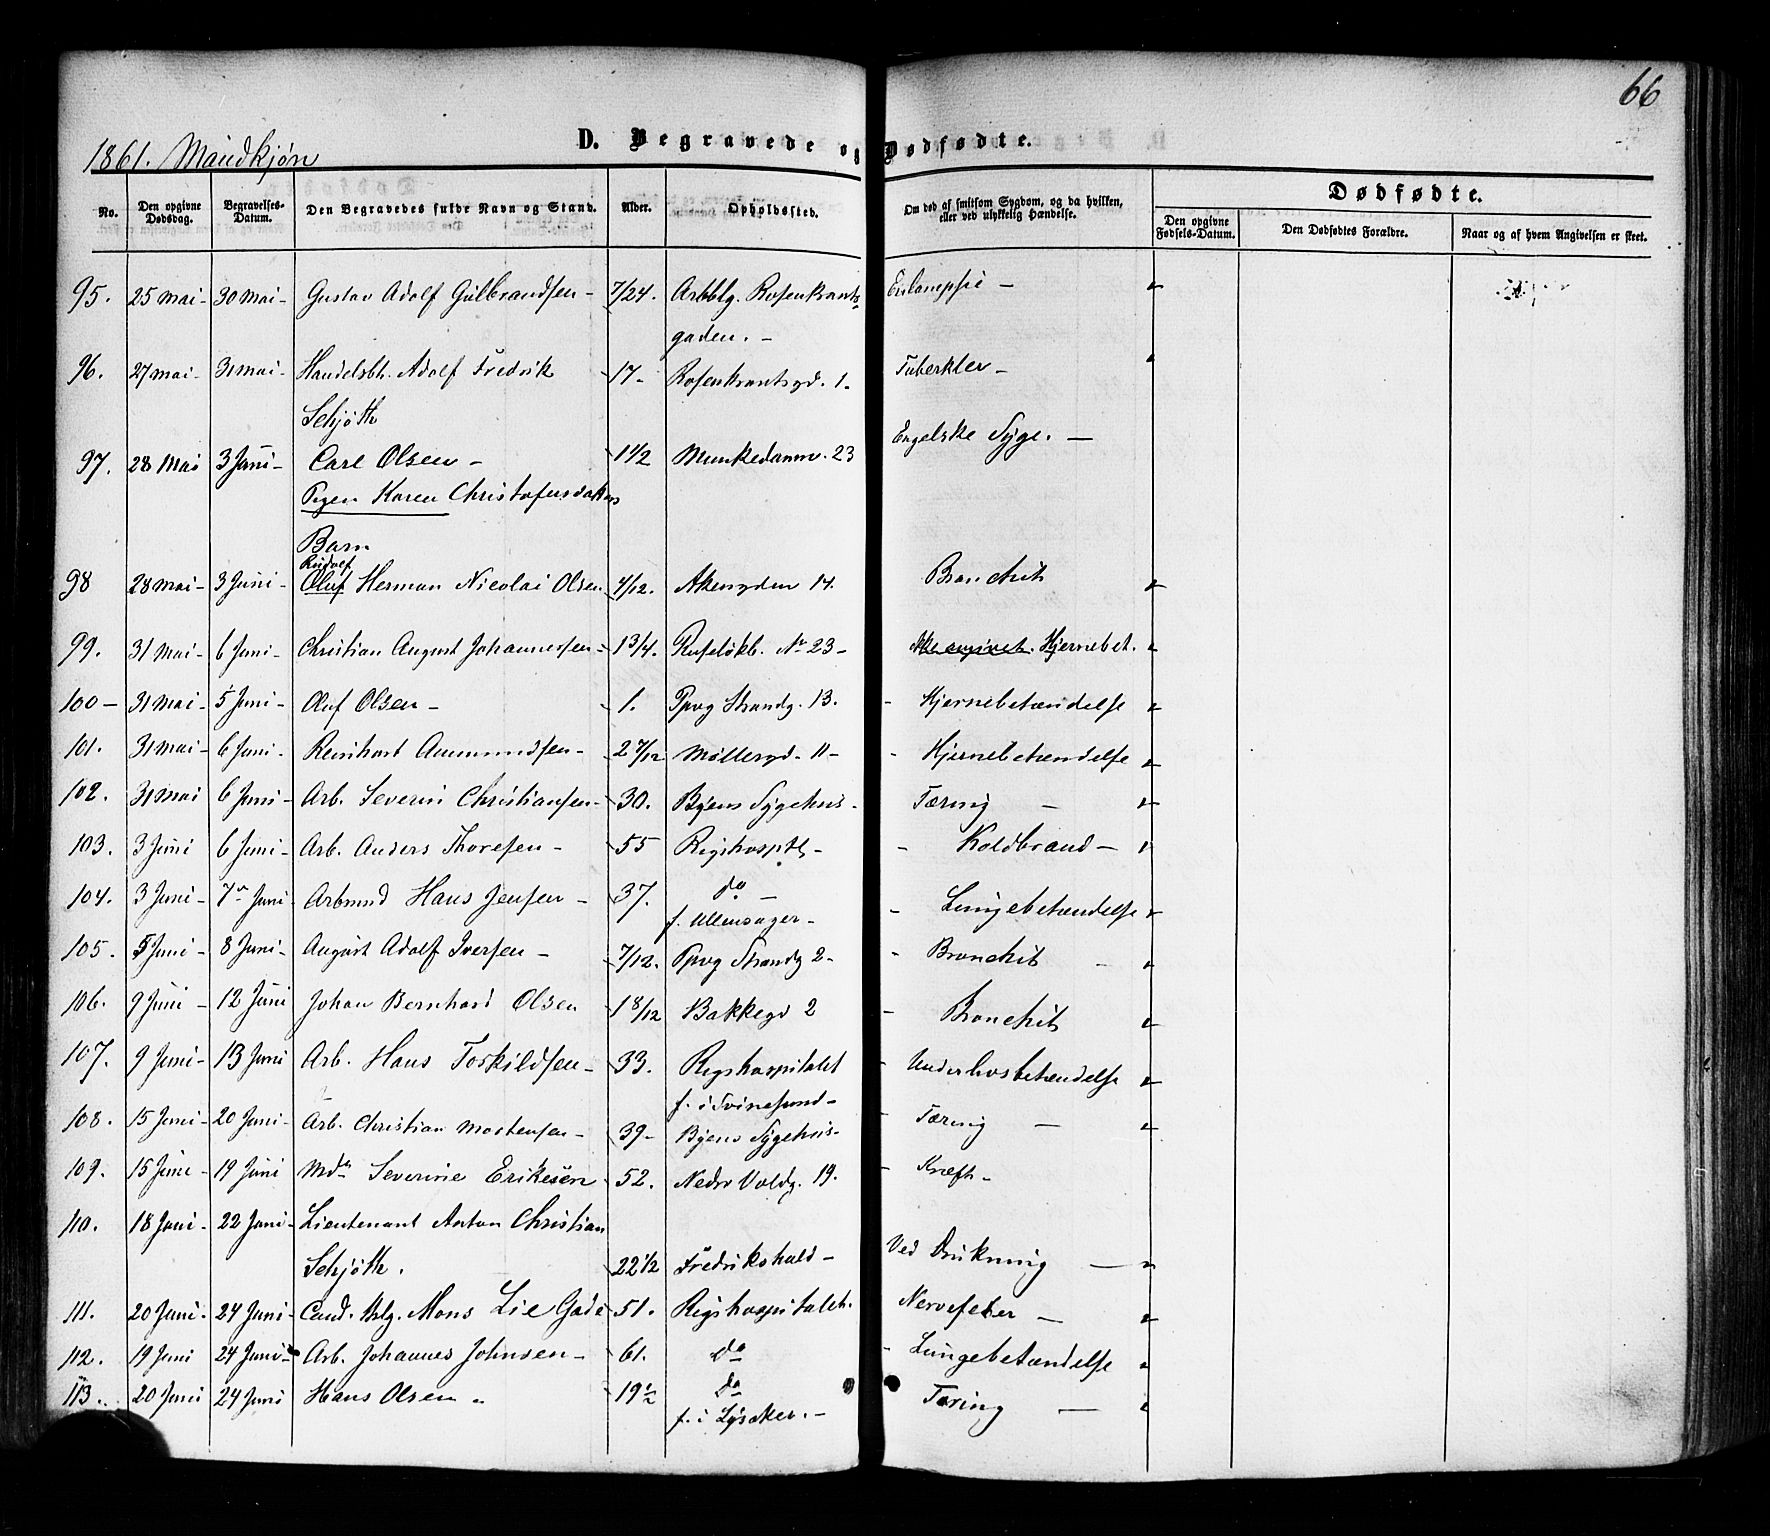 66
1861. Mandkjøn
D. Begravede og Dødfødte.
No. Den opgivne Dødsdag. Begravelses-Datum. Den Begravedes fulde Navn og Stand. Alder. Opholdssted. Om død af smitsom Sygdom, og da hvilken, eller ved ulykkelig Hændelse. Dødfødte.
Den opgivne Fødsels-Datum. Den Dødfødtes Forældre. Naar og af hvem Angivelsen er skeet.
95. 25 Mai - 30 Mai - Gustav Adolf Gulbrandsen - 7/24. Arbblg. Rosenkrants- Eclampsie -
gaden. -
96. 27 Mai - 31 Mai - Handelsbt. Adolf Fredrik 17 - Rosenkrantsgd. 1 - Tuberkler -
Schjøth
97. 28 Mai 3 Juni - Carl Olsen - 1 1/2 Munkedamv. 23 Engelske Syge. -
Pigen Karen Christofersdatters
Barn
Rudolf
98 28 Mai - 3 Juni - Oluf Herman Nicolai Olsen 4/12. Akersgden 14. Bronchit
99. 31 Mai - 6 Juni - Christian August Johannessen - 1 3/4. Ruseløkb. No 23 - Ikke angivet. Hjernebet.
100 - 31 Mai - 5 Juni - Oluf Olsen - 1. Ppvg Strandg. 13. - Hjernebetændelse
101. 31 Mai - 6 Juni - Reinhart Aummundsen - 2 7/12 Møllergd. 11 - - Hjernebetændelse
102. 31 Mai 6 Juni - Arb. Severin Christiansen - 30. Byens Sygehus - Tæring -
103. 3 Juni 6 Juni - Arb. Anders Thoresen - 55 Rigshosptl - - Koldbrand -
104. 3 Juni - 7 Juni Arbmnd Hans Jensen - 37. do - - Lungebetændelse
f. Ullensager -
105. 5 Juni - 8 Juni - August Adolf Iversen - 7/12. Ppvg Strandg 2 - - Bronchit -
106. 9 Juni - 12 Juni Johan Bernhard Olsen 1 8/12 Bakkegd 2 - Bronchit
107. 9 Juni - 13 Juni Arb. Hans Torkildsen - 33. Rigshospitalet - Underlivsbetændelse
f. i Svinesund -
108. 15 Juni - 20 Juni - Arb. Christian Mortensen - 39 - Byens Sygehus - - Tæring -
109. 15 Juni - 19 Juni Mdm Severine Eriksen 52. Nedre Voldg. 19. - Kræft -
110. 18 Juni - 22 Juni - Lieutenant Anton Christian
Schjøth. 22 1/2 Fredrikshald - Ved Drukning -
111. 20 Juni. 24 Juni - Cand. Mons Lie Gade 51. Rigshospitalet. Nervefeber -
112. 19 Juni 24 Juni - Arb. Johannes Johnsen - 61. do - Lungebetændelse
113. 20 Juni 24 Juni Hans Olsen - 19 1/2 do Tæring -
f. i Lysaker. -